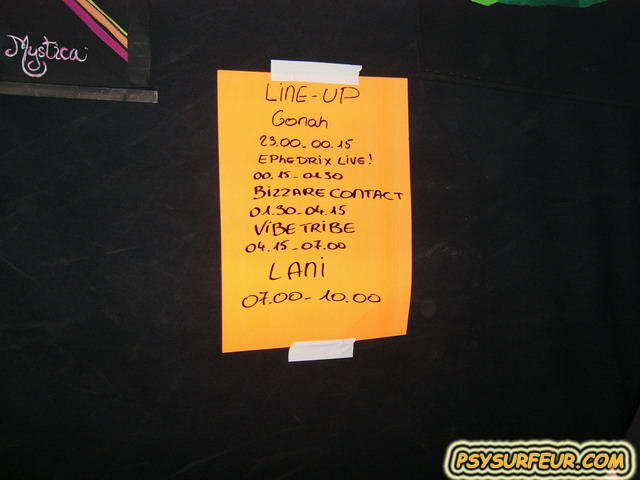 Mystica
LINE-UP
Gonah
23.00-00.15
EPHEDRIX LIVE!
00.15-01.30
BIZZARE CONTACT
01.30-04.15
VIBE TRIBE
04.15-07.00
LANI
07.00-10.00
PSYSURFEUR.COM